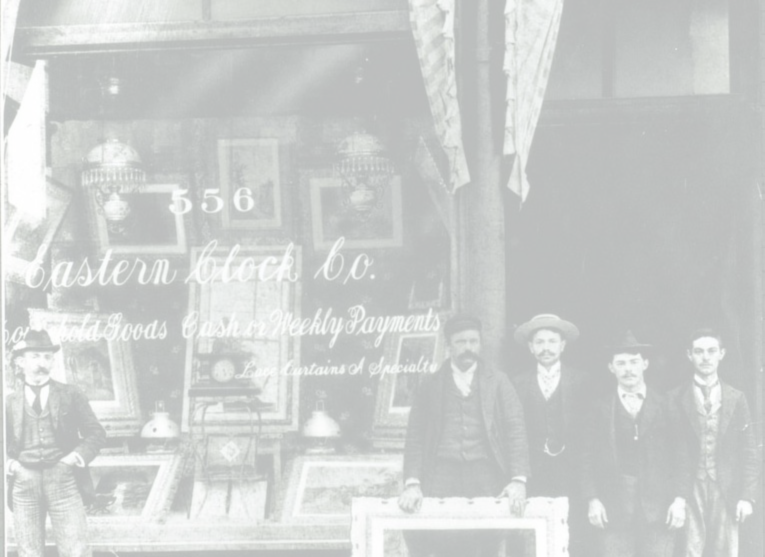 556
Eastern Clock Co.
Household Goods Cash or Weekly Payments
Lace Curtains A Specialty